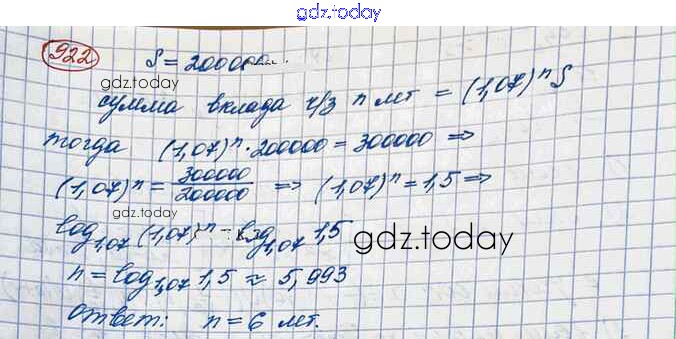 gdz.today
922 S = 200000
gdz.today
сумма вклада ч/з n лет = (1,07)^n S
тогда (1,07)^n · 200000 = 300000 ⇒
(1,07)^n = 300000/200000 ⇒ (1,07)^n = 1,5 ⇒
gdz.today
log_{1,07} (1,07)^n = log_{1,07} 1,5
gdz.today
n = log_{1,07} 1,5 ≈ 5,993
Ответ: n = 6 лет.